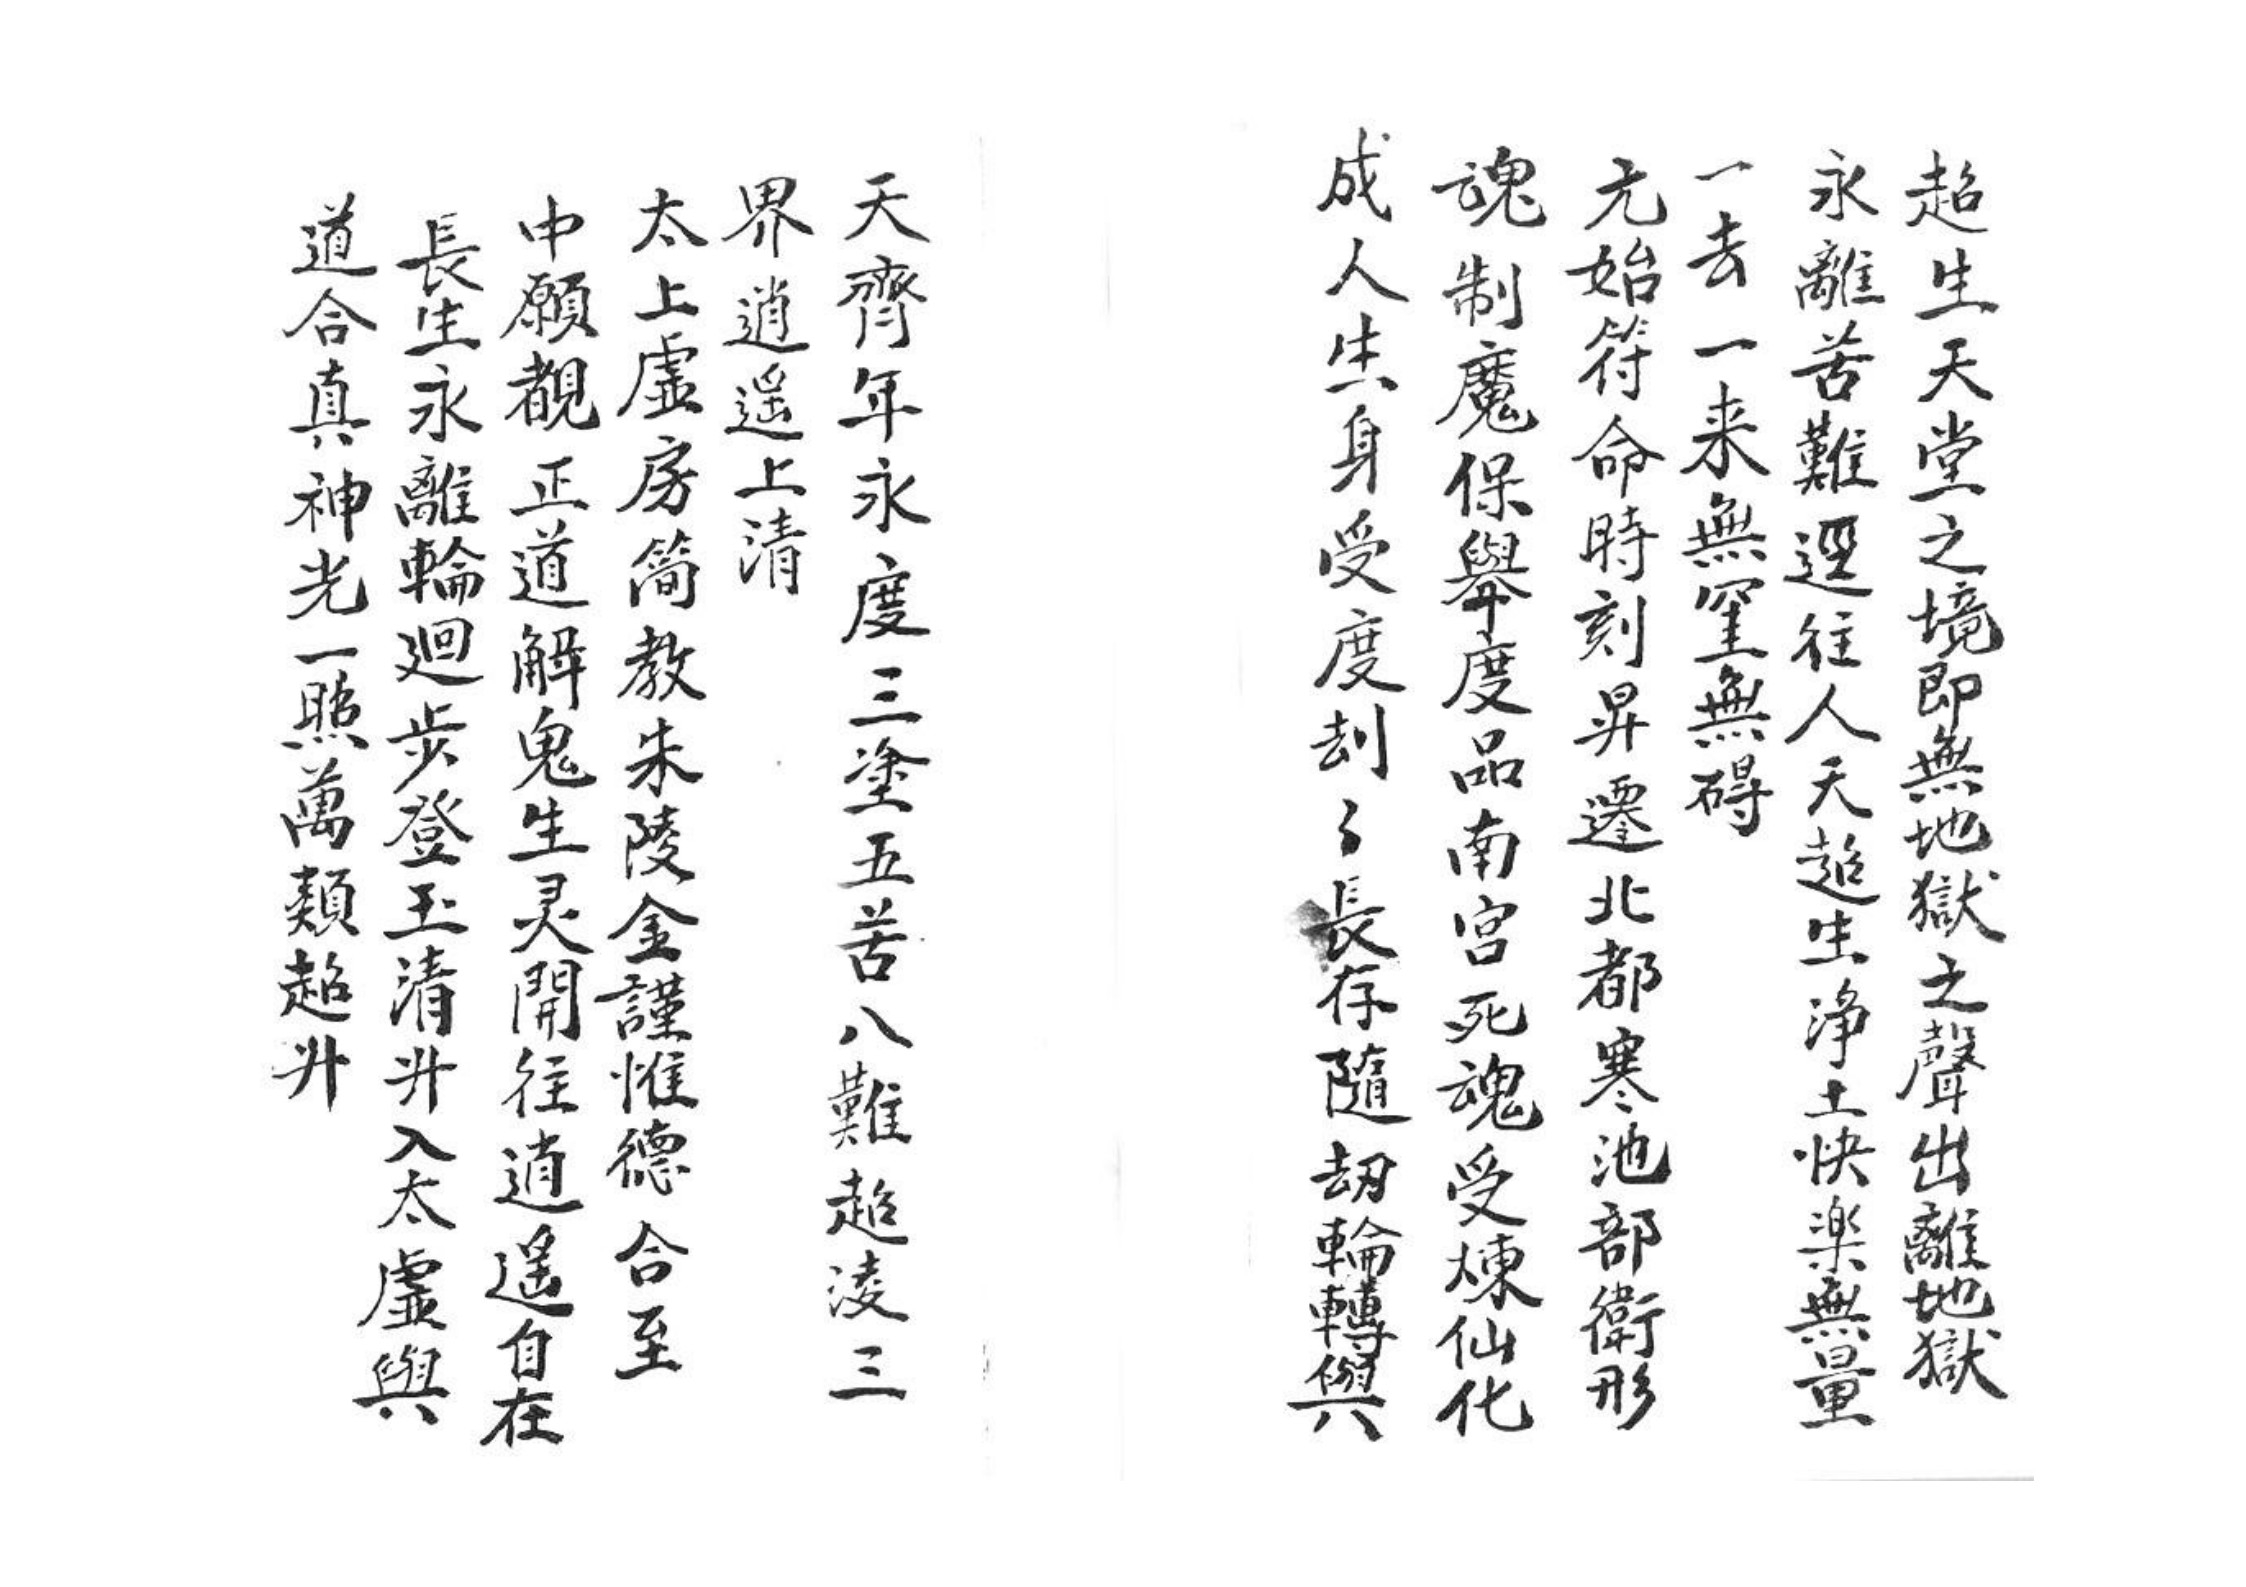 超生天堂之境即無地獄之聲出離地獄
永離苦難逕往人天超生淨土快楽無量
一去一来無罣無碍
元始符命時刻昇遷北都寒池部衛形
魂制魔保舉度品南宮死魂受煉仙化
成人生身受度刦〻長存隨刼輪轉與
天齊年永度三塗五苦八難超淩三
界逍遥上清
太上虛房簡教朱陵金謹惟德合至
中願覩正道解鬼生灵開往逍遥自在
長生永離輪廻步登玉清升入太虛與
道合真神光一照萬類超升